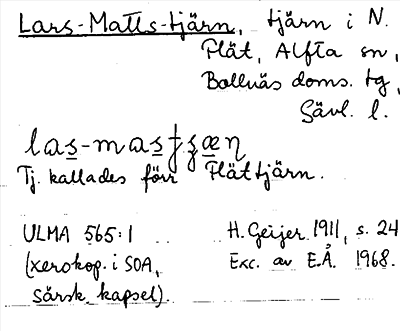 Lars-Matts-tjärn, tjärn i N.
Flät, Alfta sn,
Bollnäs doms. tg,
Gävl. l.
las-mastʃæɳ
Tj. kallades förr Flättjärn.
ULMA 565:1
(xerokop. i SOA,
särsk. kapsel).
H. Geijer 1911, s. 24
Exc. av E.Å. 1968.